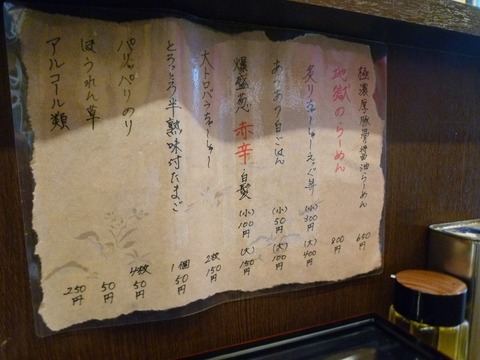 極濃厚豚骨醤油らーめん 650円
地獄のらーめん 800円
炙りちゃーしゅーえっぐ丼 (小)300円 (大)400円
あつあつ白ごはん (小)50円 (大)100円
爆盛葱 赤辛 白髪 (小)100円 (大)150円
大トロバラちゃーしゅー 2枚150円
とろっとろ半熟味付たまご 1個50円
パリッパリのり 4枚50円
ほうれん草 50円
アルコール類 250円